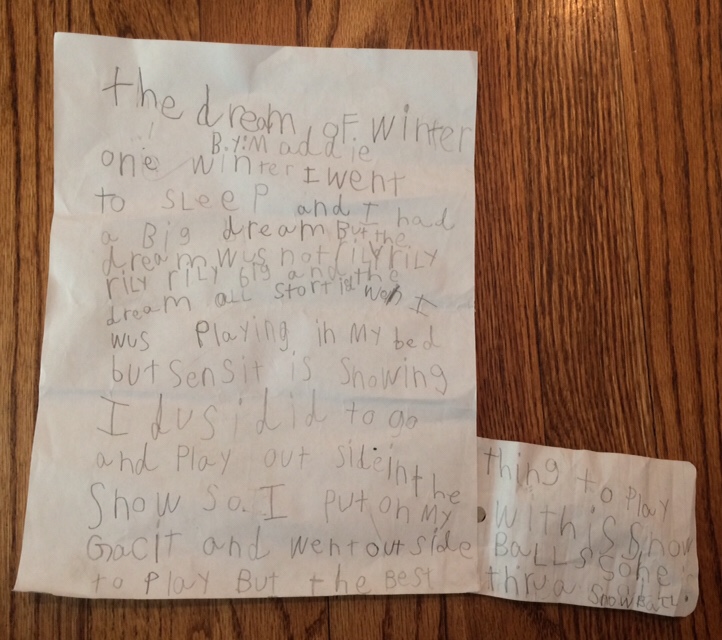 the dream of winter
By: Maddie
one winter I went
to sleep and I had
a Big dream But the
dream wus not rily rily
rily rily big and the
dream all startid wen I
wus Playing in My bed
but sens it is snowing
I dusidid to go
and Play out side in the
Snow so. I put on My
Gacit and went out side
to Play But the Best
thing to play
with is Snow
BALLS so he
thru a snowball.